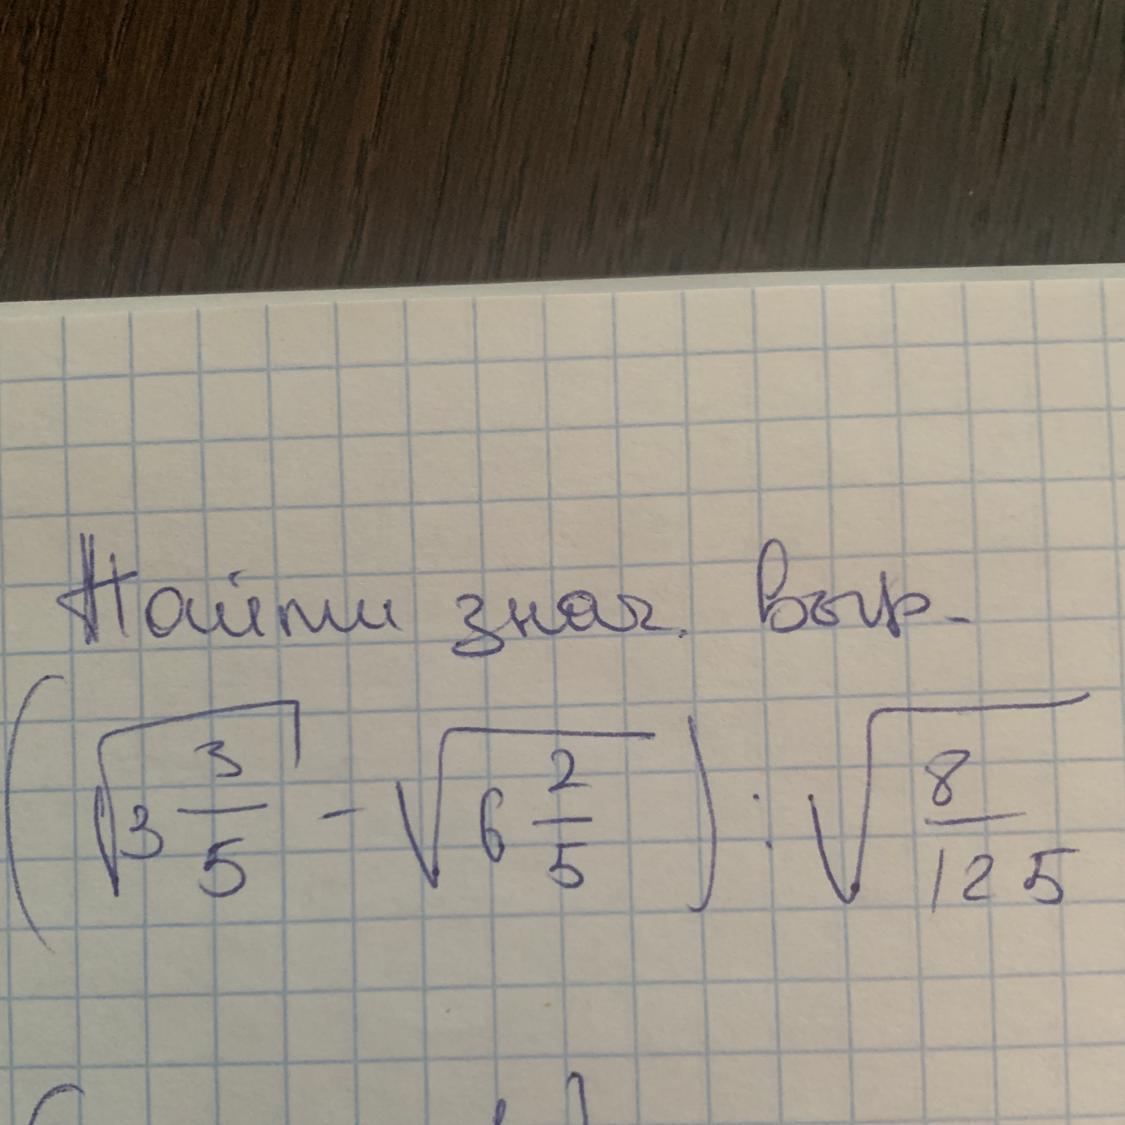 Найти знач. выр.
(√3 3/5 - √6 2/5) : √8/125